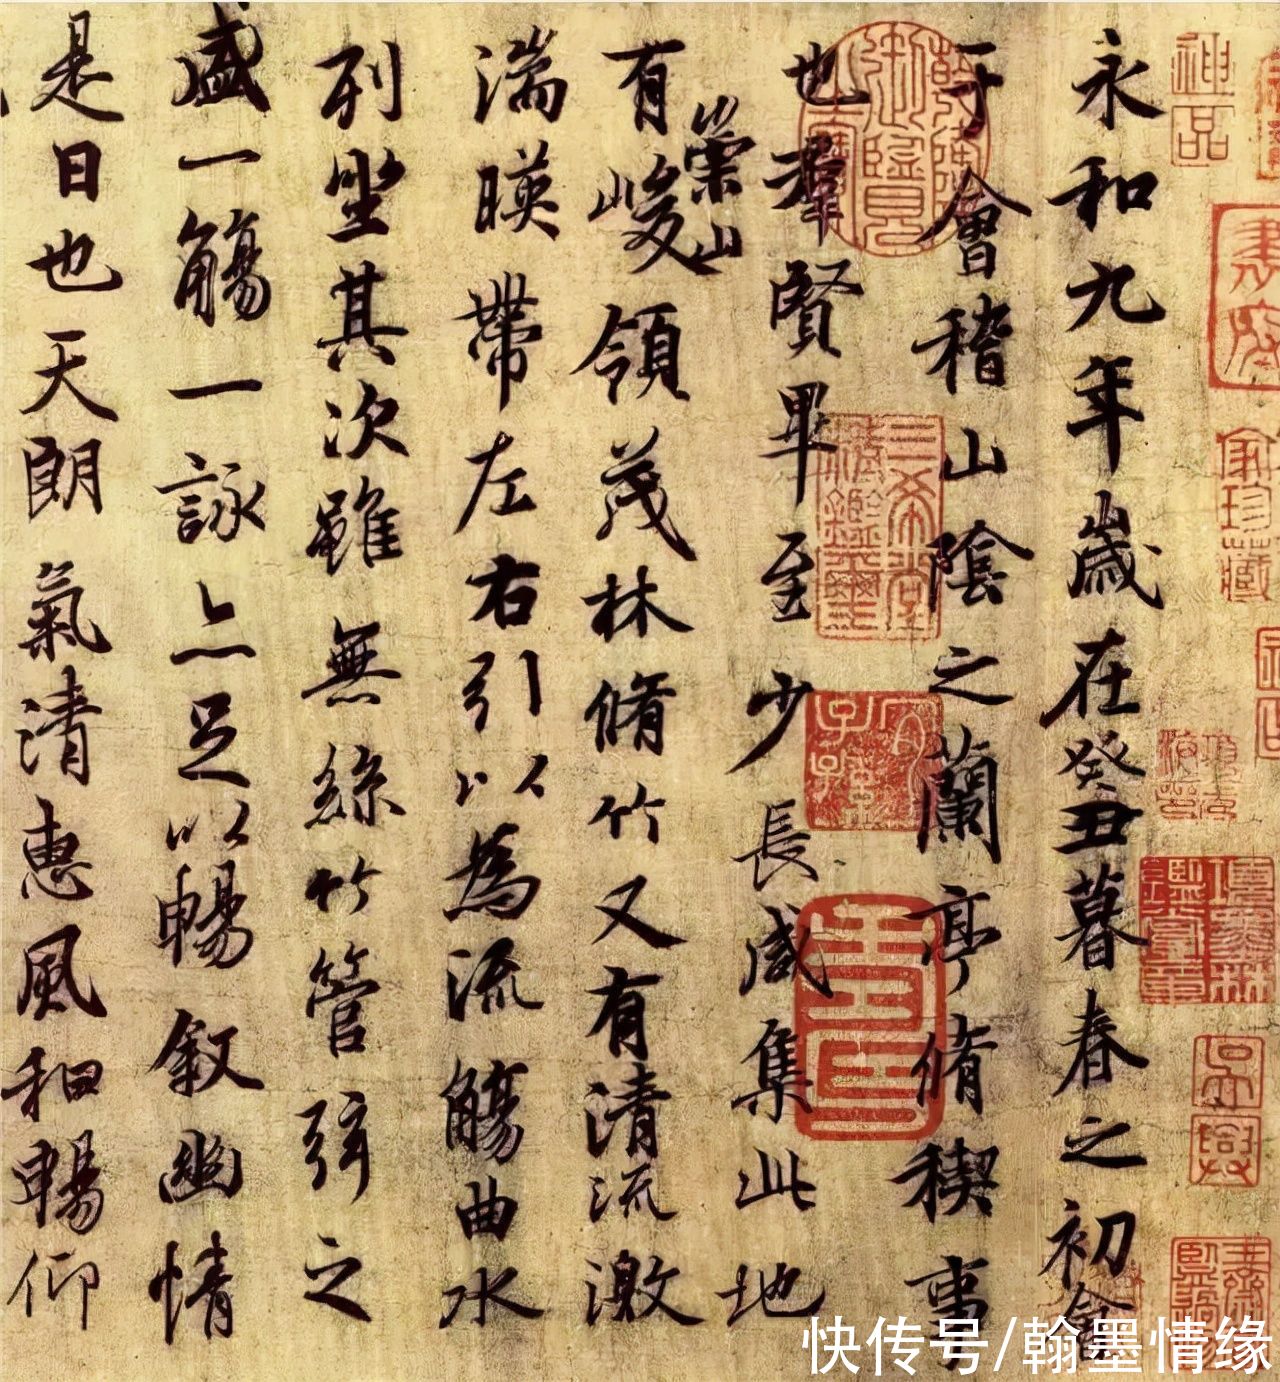 永和九年歲在癸丑暮春之初會
于會稽山陰之蘭亭脩稧事
也羣賢畢至少長咸集此地
有崇山峻領茂林脩竹又有清流激
湍暎帶左右引以為流觴曲水
列坐其次雖無絲竹管弦之
盛一觴一詠亦足以暢敘幽情
是日也天朗氣清惠風和暢仰
神品
書府
珍藏
三希堂精鑑璽
快传号/翰墨情缘